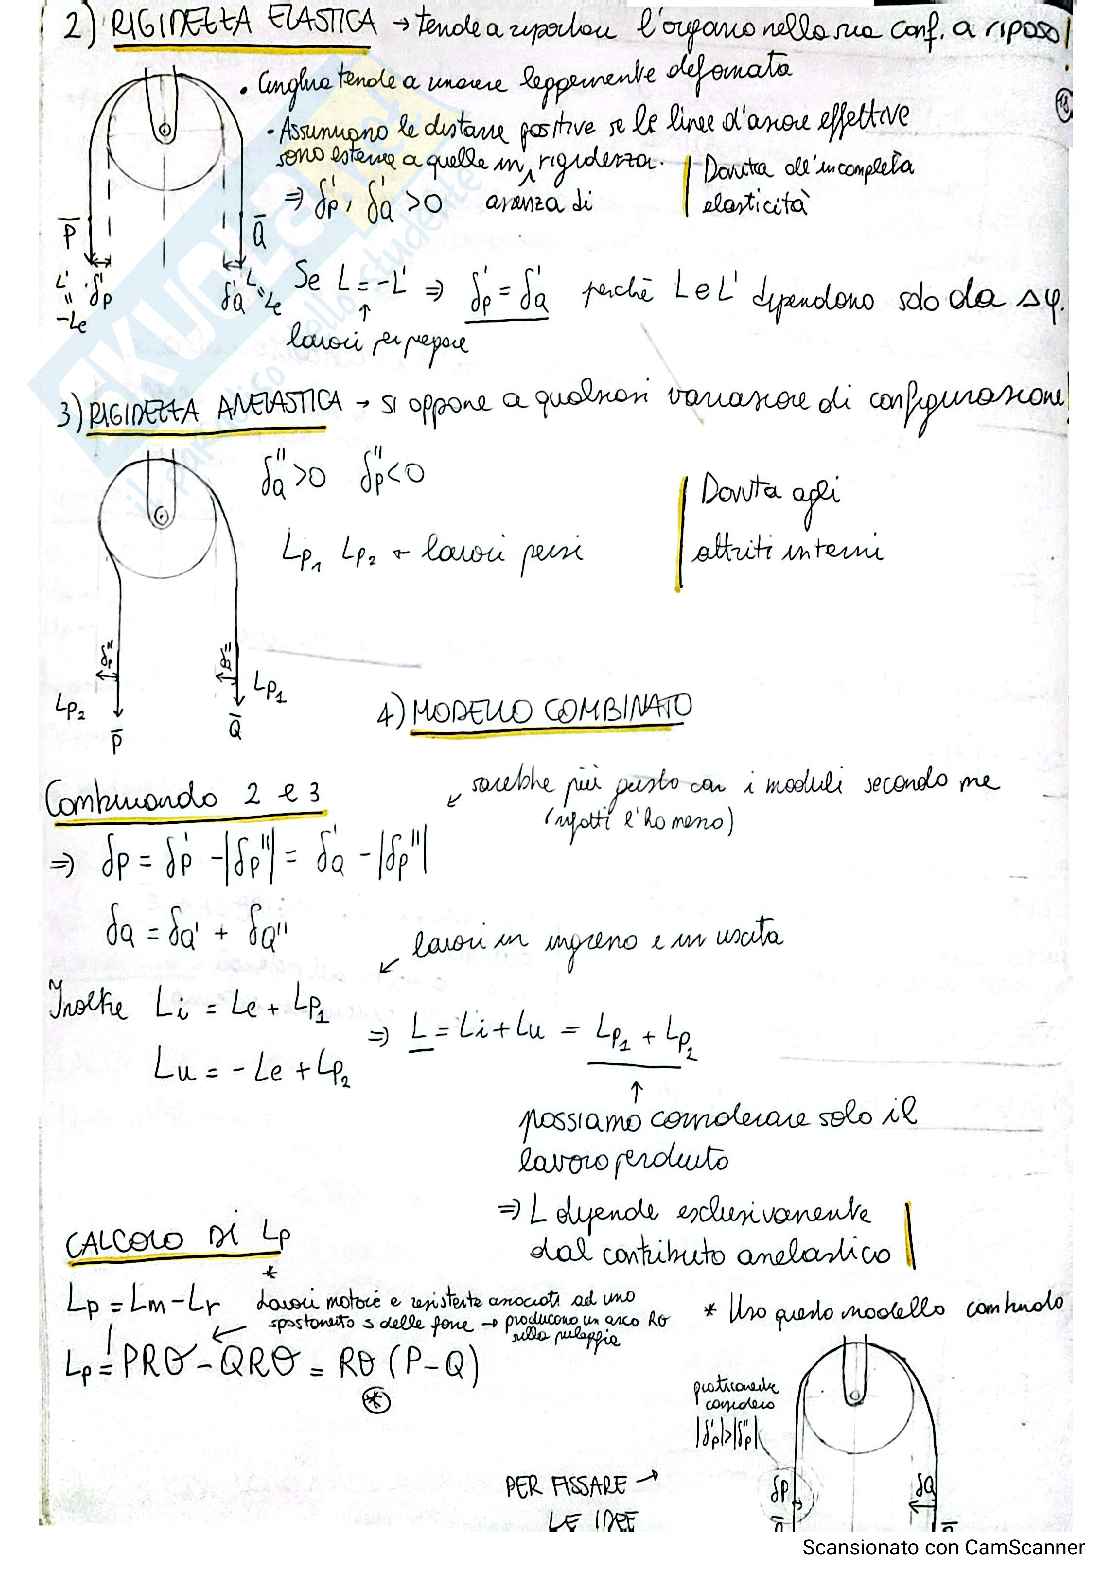 2) RIGIDEZZA ELASTICA → tende a riportare l'organo nella sua conf. a riposo!
• Cinghia tende a rimanere leggermente deformata
13
• Assumiamo le distanze positive se le linee d'azione effettive
sono esterne a quelle in assenza di rigidezza.
⇒ δp', δQ' > 0
Dovuta all'incompleta
elasticità
P Q
L' = -Le δp' δQ' L = Le
Se L = -L' ⇒ δp' = δQ' perché L e L' dipendono solo da Δφ.
↑
lavori per piegare
3) RIGIDEZZA ANELASTICA → si oppone a qualsiasi variazione di configurazione!
δQ'' > 0 δp'' < 0
Dovuta agli
attriti interni
Lp1 Lp2 → lavori persi
δp'' δQ''
Lp2 Lp1
P Q
4) MODELLO COMBINATO
Combinando 2 e 3
↙ sarebbe più giusto con i moduli secondo me
(infatti l'ho messo)
⇒ δp = δp' - |δp''| = δQ' - |δp''|
δQ = δQ' + δQ''
↙ lavori in ingresso e in uscita
Inoltre Li = Le + Lp1
Lu = -Le + Lp2
⇒ L = Li + Lu = Lp1 + Lp2
↑
possiamo considerare solo il
lavoro perduto
⇒ L dipende esclusivamente
dal contributo anelastico
CALCOLO DI Lp
*
Lp = Lm - Lr
Lavori motore e resistente associati ad uno
spostamento s delle fune → producono un arco Rθ
sulla puleggia
* Uso questo modello combinato
Lp = PRθ - QRθ = Rθ (P-Q)
*
praticamente
considero
|δp'|>|δp''|
PER FISSARE →
LE IDEE
δp δQ
Scansionato con CamScanner
SKUOLA.net
il paradiso dello studente